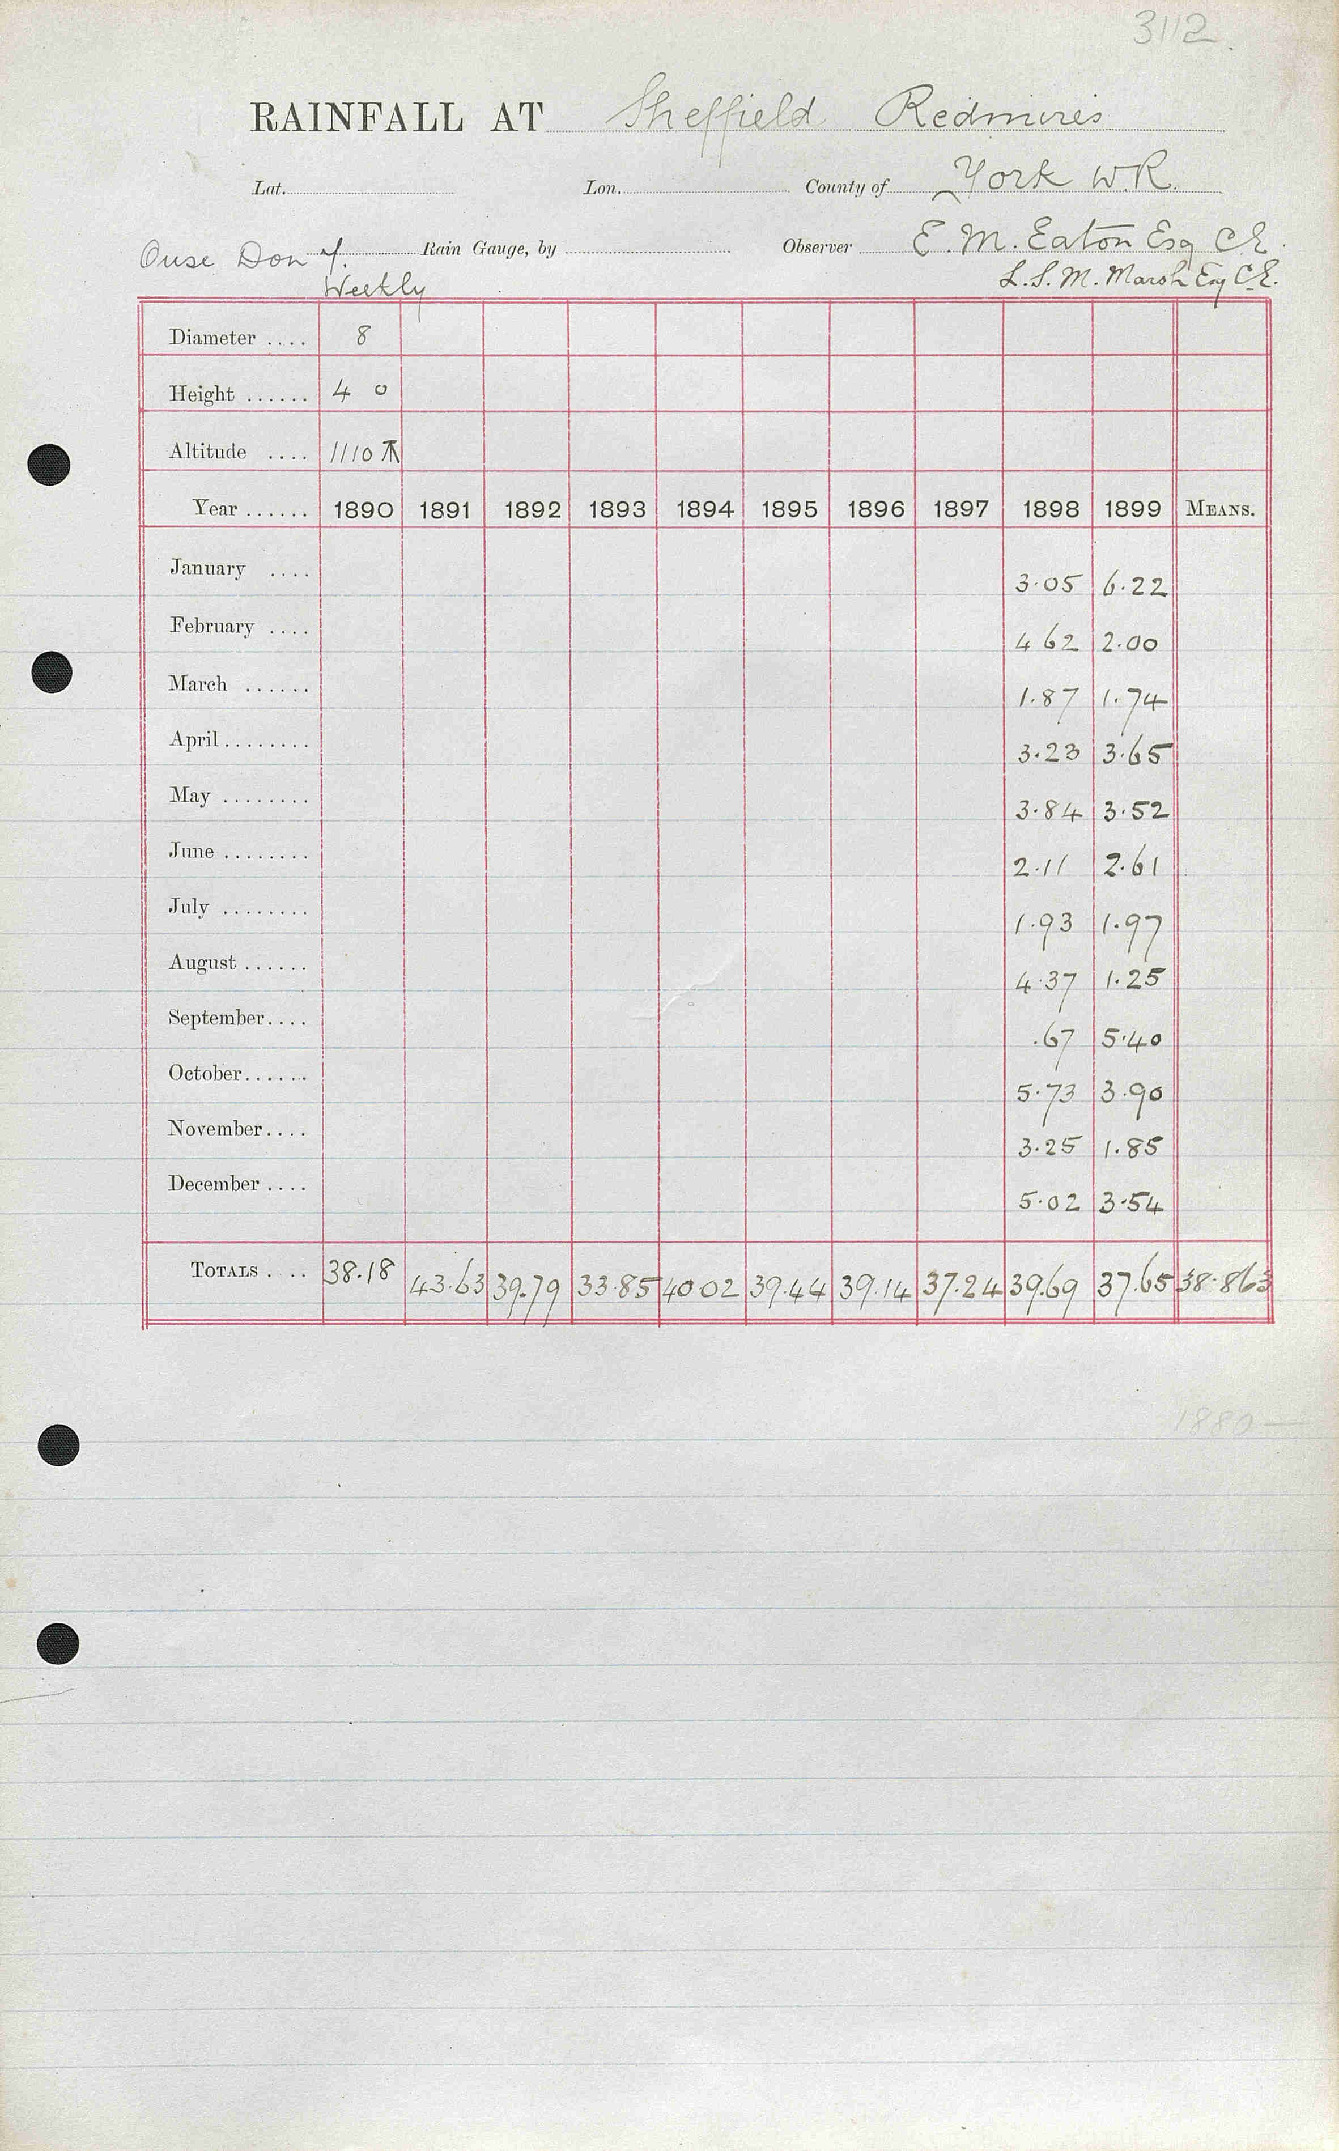 3112.
RAINFALL AT Sheffield Redmires
Lat. Lon. County of York W.R.
Ouse Don Rain Gauge, by Observer E. M. Eaton Esq C.E.
Weekly L.S.M. Marsh Esq C.E.
Diameter .... 8
Height ...... 4 0
Altitude .... 1110
Year ...... 1890 1891 1892 1893 1894 1895 1896 1897 1898 1899 MEANS.
January .... 3.05 6.22
February .... 4 62 2.00
March ...... 1.87 1.74
April ........ 3.23 3.65
May ........ 3.84 3.52
June ........ 2.11 2.61
July ........ 1.93 1.97
August ...... 4.37 1.25
September .... .67 5.40
October ...... 5.73 3.90
November .... 3.25 1.85
December .... 5.02 3.54
TOTALS .... 38.18 43.63 39.79 33.85 40 02 39.44 39.14 37.24 39.69 37.65 38.863
1880—